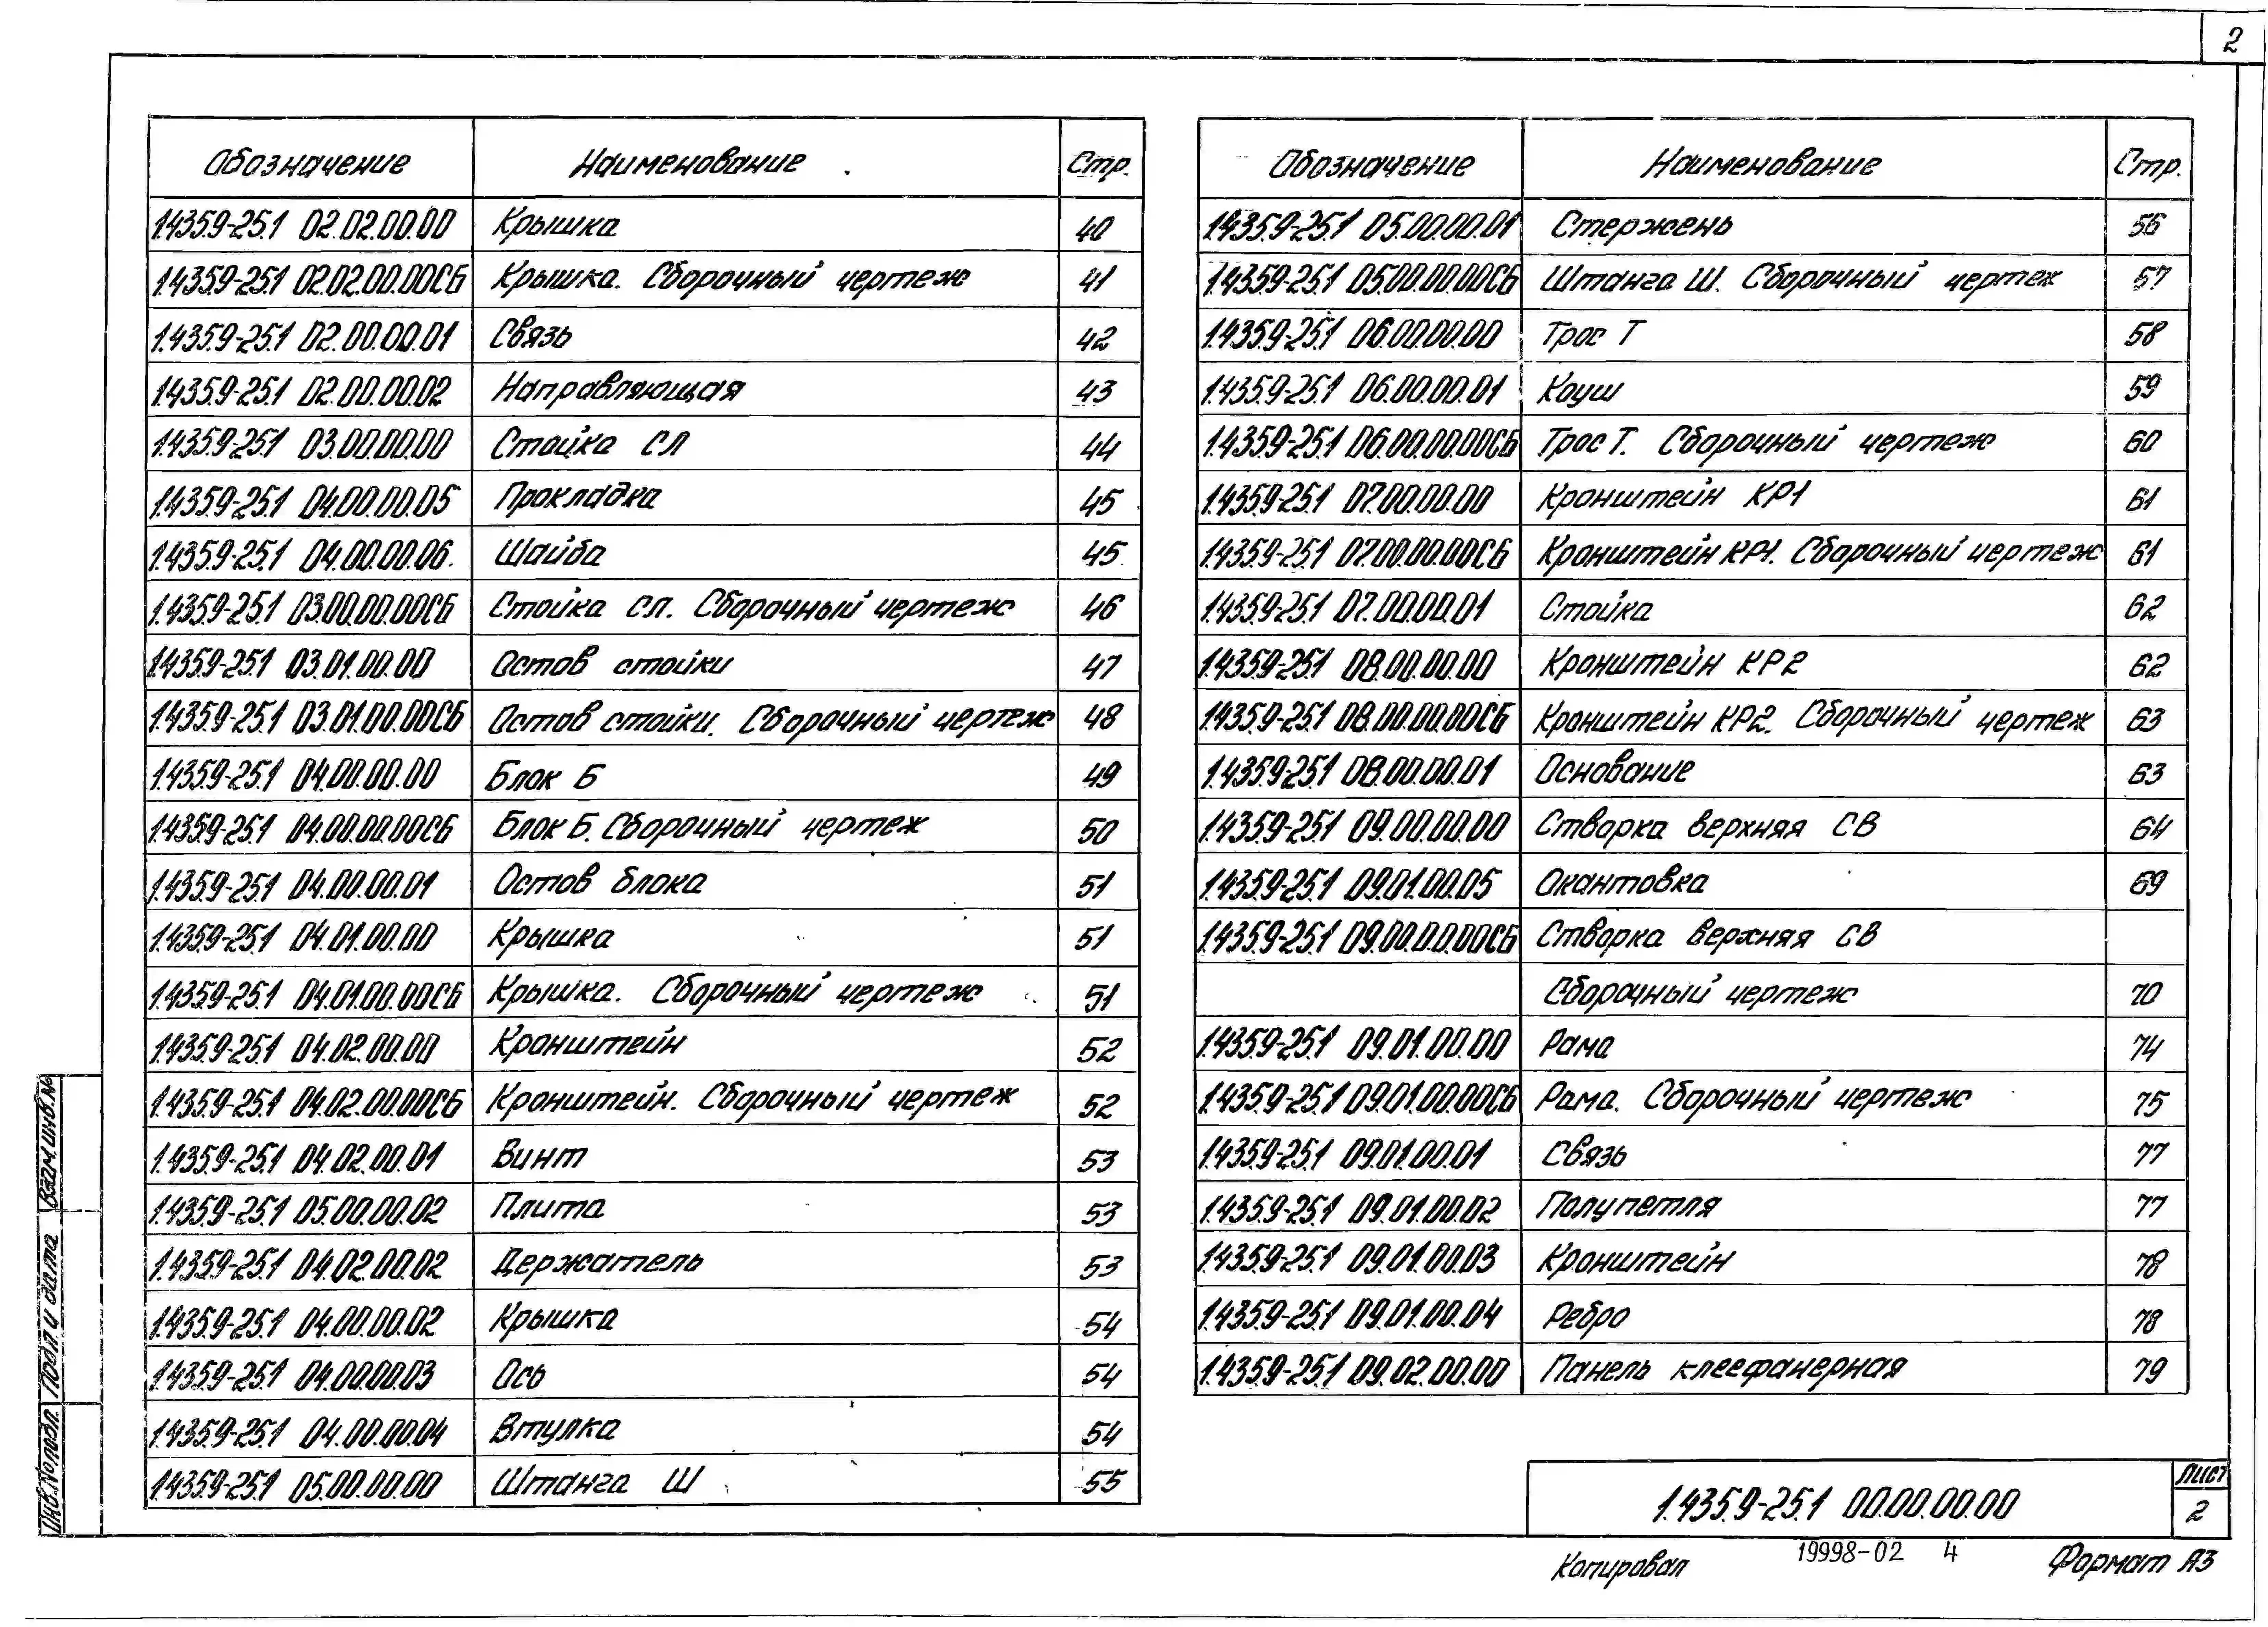 2
Обозначение Наименование Стр.
1.435.9-25.1 02.02.00.00 Крышка 40
1.435.9-25.1 02.02.00.00СБ Крышка. Сборочный чертеж 41
1.435.9-25.1 02.00.00.01 Связь 42
1.435.9-25.1 02.00.00.02 Направляющая 43
1.435.9-25.1 03.00.00.00 Стойка СЛ 44
1.435.9-25.1 04.00.00.05 Прокладка 45
1.435.9-25.1 04.00.00.06. Шайба 45
1.435.9-25.1 03.00.00.00СБ Стойка СЛ. Сборочный чертеж 46
1.435.9-25.1 03.01.00.00 Остов стойки 47
1.435.9-25.1 03.01.00.00СБ Остов стойки. Сборочный чертеж 48
1.435.9-25.1 04.00.00.00 Блок Б 49
1.435.9-25.1 04.00.00.00СБ Блок Б. Сборочный чертеж 50
1.435.9-25.1 04.00.00.01 Остов блока 51
1.435.9-25.1 04.01.00.00 Крышка 51
1.435.9-25.1 04.01.00.00СБ Крышка. Сборочный чертеж 51
1.435.9-25.1 04.02.00.00 Кронштейн 52
1.435.9-25.1 04.02.00.00СБ Кронштейн. Сборочный чертеж 52
1.435.9-25.1 04.02.00.01 Винт 53
1.435.9-25.1 05.00.00.02 Плита 53
1.435.9-25.1 04.02.00.02 Держатель 53
1.435.9-25.1 04.00.00.02 Крышка 54
1.435.9-25.1 04.00.00.03 Ось 54
1.435.9-25.1 04.00.00.04 Втулка 54
1.435.9-25.1 05.00.00.00 Штанга Ш 55
Обозначение Наименование Стр.
1.435.9-25.1 05.00.00.01 Стержень 56
1.435.9-25.1 05.00.00.00СБ Штанга Ш. Сборочный чертеж 57
1.435.9-25.1 06.00.00.00 Трос Т 58
1.435.9-25.1 06.00.00.01 Коуш 59
1.435.9-25.1 06.00.00.00СБ Трос Т. Сборочный чертеж 60
1.435.9-25.1 07.00.00.00 Кронштейн КР1 61
1.435.9-25.1 07.00.00.00СБ Кронштейн КР1. Сборочный чертеж 61
1.435.9-25.1 07.00.00.01 Стойка 62
1.435.9-25.1 08.00.00.00 Кронштейн КР2 62
1.435.9-25.1 08.00.00.00СБ Кронштейн КР2. Сборочный чертеж 63
1.435.9-25.1 08.00.00.01 Основание 63
1.435.9-25.1 09.00.00.00 Створка верхняя СВ 64
1.435.9-25.1 09.01.00.05 Окантовка 69
1.435.9-25.1 09.00.00.00СБ Створка верхняя СВ
Сборочный чертеж 70
1.435.9-25.1 09.01.00.00 Рама 74
1.435.9-25.1 09.01.00.00СБ Рама. Сборочный чертеж 75
1.435.9-25.1 09.01.00.01 Связь 77
1.435.9-25.1 09.01.00.02 Полупетля 77
1.435.9-25.1 09.01.00.03 Кронштейн 78
1.435.9-25.1 09.01.00.04 Ребро 78
1.435.9-25.1 09.02.00.00 Панель клеефанерная 79
Взам.инв.№
Подп. и дата
Инв.№ подл.
1.435.9-25.1 00.00.00.00
Лист
2
Копировал 19998-02 4 Формат А3